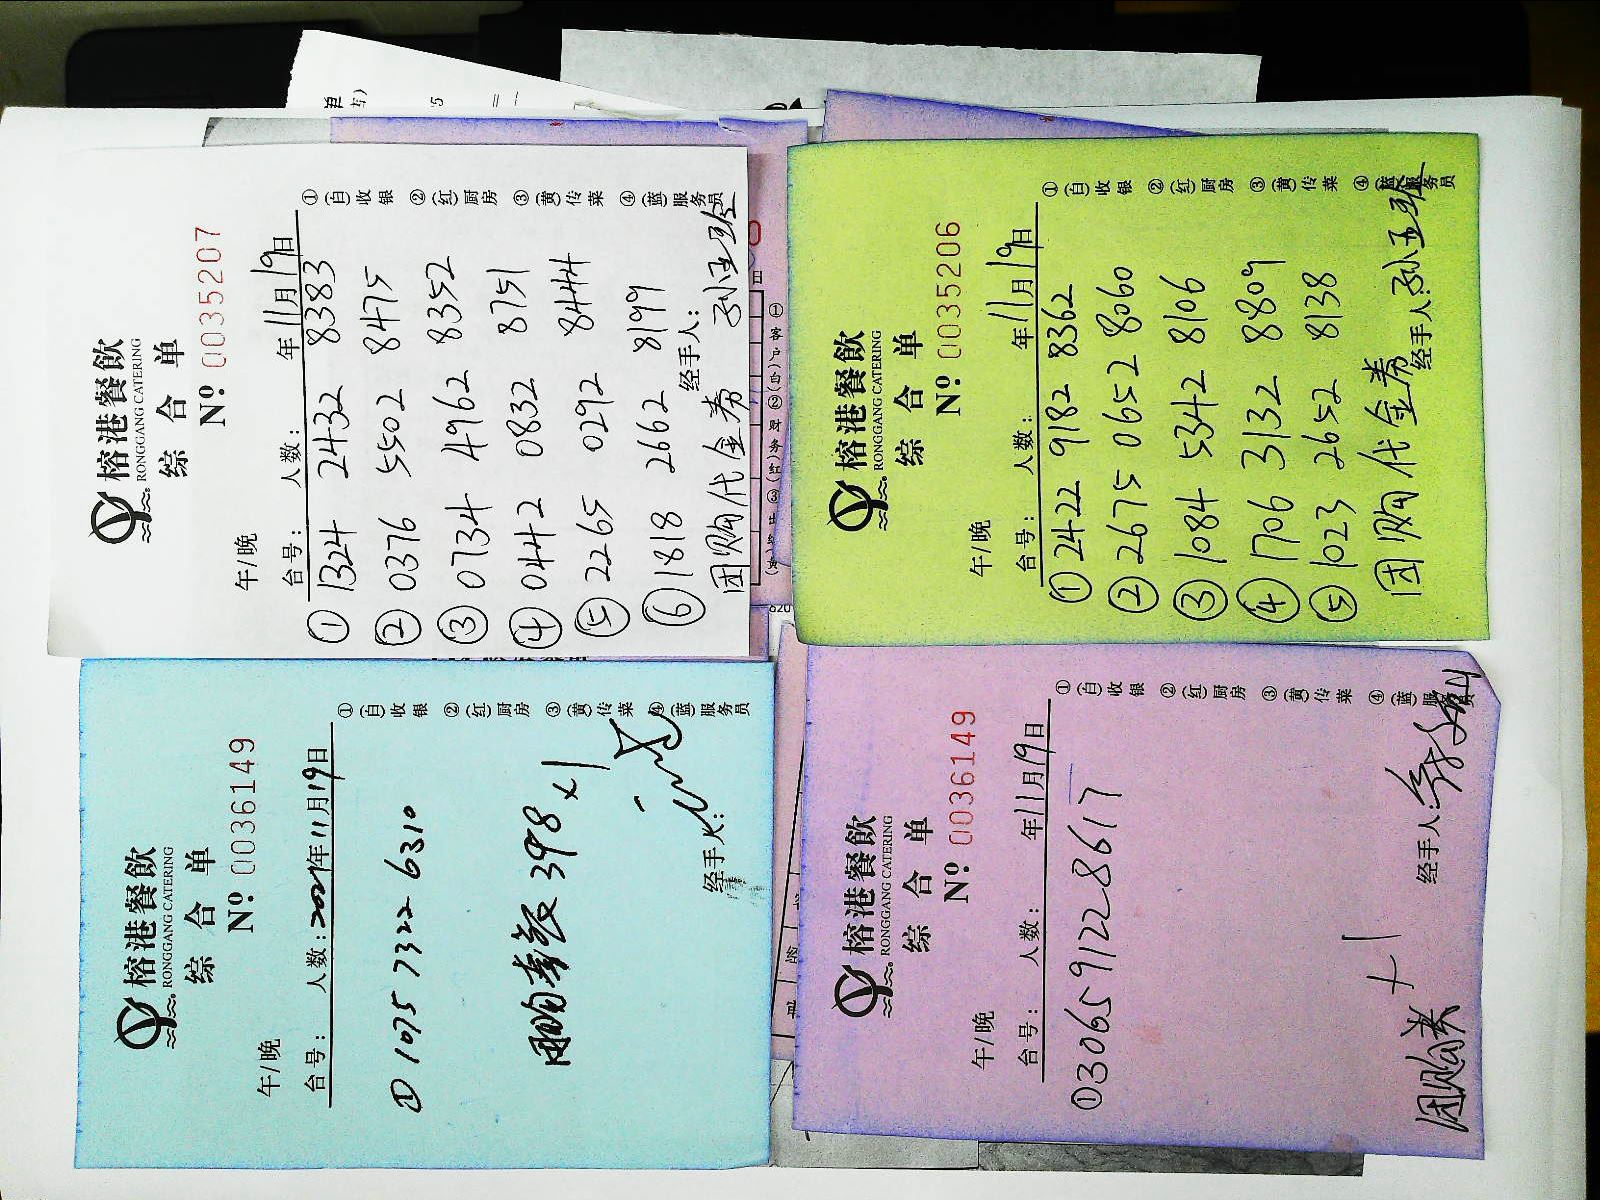 榕港餐飲
RONGGANG CATERING
综合单
Nº 0035207
午/晚
台号： 人数： 年11月19日
①1324 2432 8383
②0376 5502 8475
③0734 4962 8352
④0442 0832 8751
⑤2265 0292 8444
⑥1818 2662 8199
团购代金券
经手人：
①(白)收银 ②(红)厨房 ③(黄)传菜 ④(蓝)服务员
榕港餐飲
RONGGANG CATERING
综合单
Nº 0035206
午/晚
台号： 人数： 年11月19日
①2422 9182 8362
②2675 0652 8060
③1084 5342 8106
④1706 3132 8809
⑤1023 2652 8138
团购代金券
经手人：
①(白)收银 ②(红)厨房 ③(黄)传菜 ④(蓝)服务员
榕港餐飲
RONGGANG CATERING
综合单
Nº 0036149
午/晚
台号： 人数：2021年11月19日
①1075 7322 6310
团购套餐398 x1
经手人：
①(白)收银 ②(红)厨房 ③(黄)传菜 ④(蓝)服务员
榕港餐飲
RONGGANG CATERING
综合单
Nº 0036149
午/晚
台号： 人数： 年11月19日
①3065 9122 8617
x1
经手人：
①(白)收银 ②(红)厨房 ③(黄)传菜 ④(蓝)服务员
①客户(白)②财务(红)③